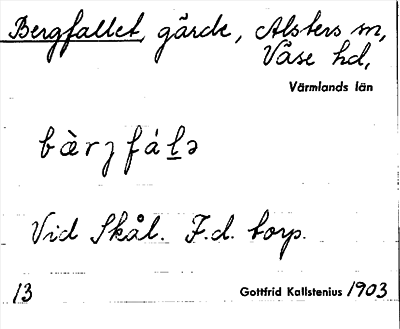 Bergfallet, gärde, Alsters sn,
Väse hd,
Värmlands län
bàrjfáḻə
Vid Skål. F.d. torp.
13 Gottfrid Kallstenius 1903